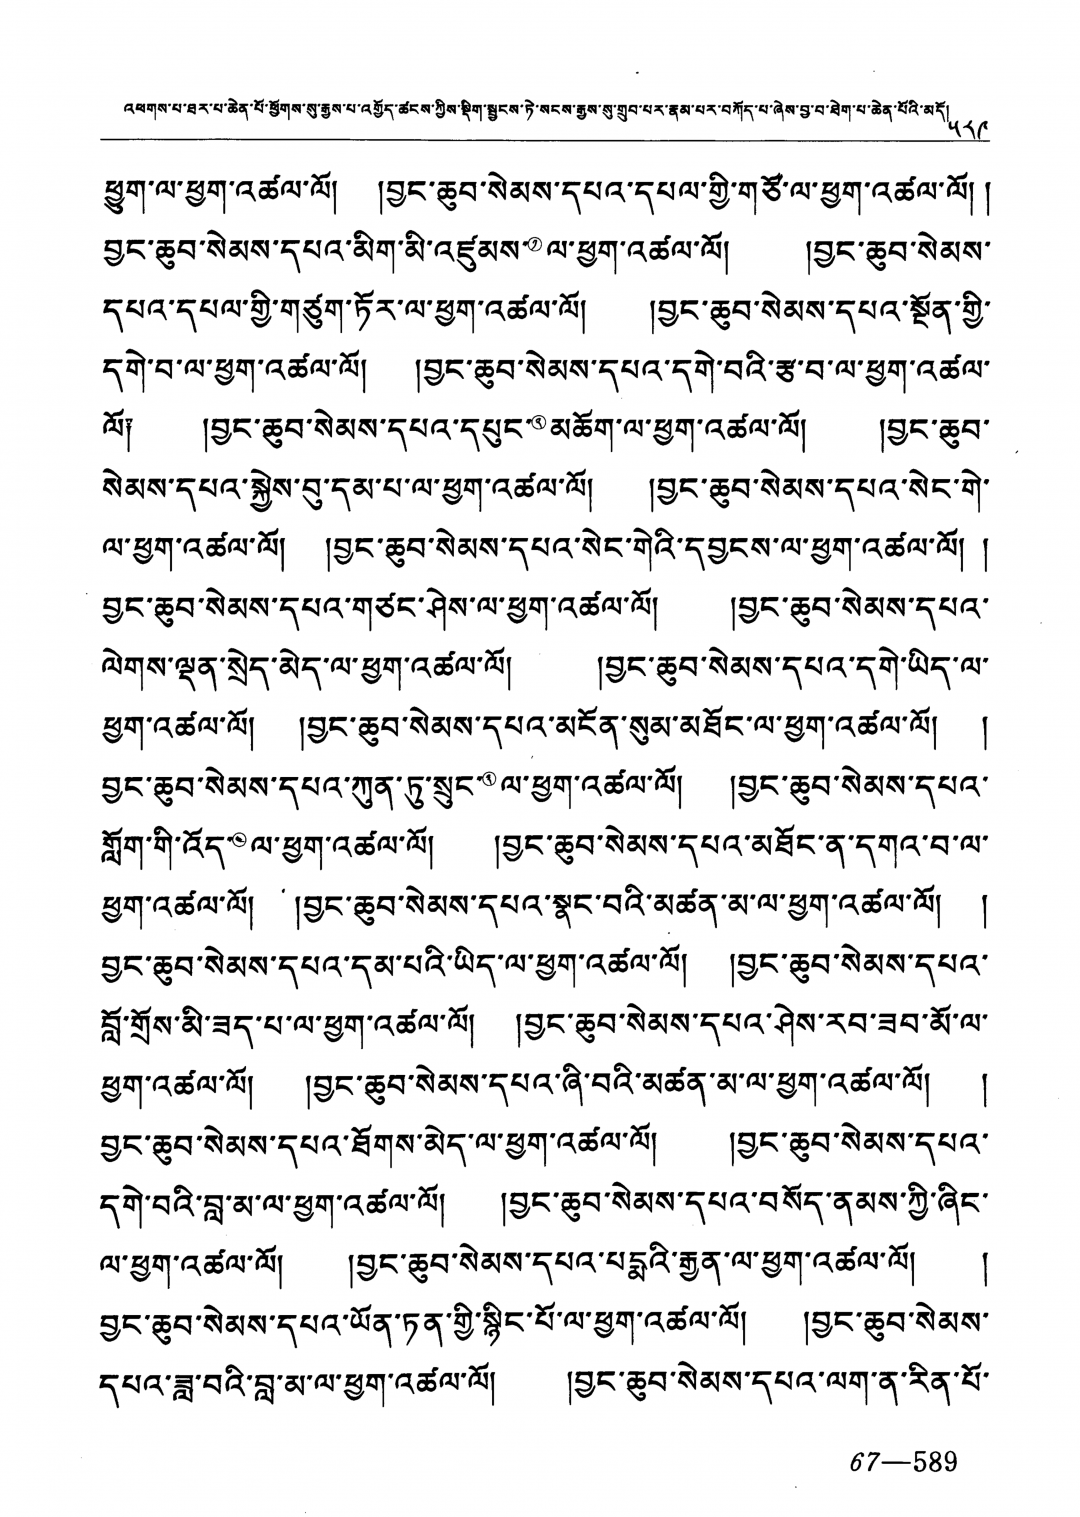 འཕགས་པ་ཐར་པ་ཆེན་པོ་ཕྱོགས་སུ་རྒྱས་པ་འགྱོད་ཚངས་ཀྱིས་སྡིག་སྦྱངས་ཏེ་སངས་རྒྱས་སུ་གྲུབ་པར་རྣམ་པར་བཀོད་པ་ཞེས་བྱ་བ་ཐེག་པ་ཆེན་པོའི་མདོ། ༥༨༩
ཕྱུག་ལ་ཕྱག་འཚལ་ལོ། །བྱང་ཆུབ་སེམས་དཔའ་དཔལ་གྱི་གཙོ་ལ་ཕྱག་འཚལ་ལོ། །
བྱང་ཆུབ་སེམས་དཔའ་མིག་མི་འཛུམས་༡ལ་ཕྱག་འཚལ་ལོ། །བྱང་ཆུབ་སེམས་
དཔའ་དཔལ་གྱི་གཙུག་ཏོར་ལ་ཕྱག་འཚལ་ལོ། །བྱང་ཆུབ་སེམས་དཔའ་སྔོན་གྱི་
དགེ་བ་ལ་ཕྱག་འཚལ་ལོ། །བྱང་ཆུབ་སེམས་དཔའ་དགེ་བའི་རྩ་བ་ལ་ཕྱག་འཚལ་
ལོ། །བྱང་ཆུབ་སེམས་དཔའ་དཔུང་༢མཆོག་ལ་ཕྱག་འཚལ་ལོ། །བྱང་ཆུབ་
སེམས་དཔའ་སྐྱེས་བུ་དམ་པ་ལ་ཕྱག་འཚལ་ལོ། །བྱང་ཆུབ་སེམས་དཔའ་སེང་གེ་
ལ་ཕྱག་འཚལ་ལོ། །བྱང་ཆུབ་སེམས་དཔའ་སེང་གེའི་དབྱངས་ལ་ཕྱག་འཚལ་ལོ། །
བྱང་ཆུབ་སེམས་དཔའ་གཙང་ཤེས་ལ་ཕྱག་འཚལ་ལོ། །བྱང་ཆུབ་སེམས་དཔའ་
ལེགས་ལྡན་སྲེད་མེད་ལ་ཕྱག་འཚལ་ལོ། །བྱང་ཆུབ་སེམས་དཔའ་དགེ་ཡིད་ལ་
ཕྱག་འཚལ་ལོ། །བྱང་ཆུབ་སེམས་དཔའ་མངོན་སུམ་མཐོང་ལ་ཕྱག་འཚལ་ལོ། །
བྱང་ཆུབ་སེམས་དཔའ་ཀུན་ཏུ་སྲུང་༣ལ་ཕྱག་འཚལ་ལོ། །བྱང་ཆུབ་སེམས་དཔའ་
གློག་གི་འོད་༤ལ་ཕྱག་འཚལ་ལོ། །བྱང་ཆུབ་སེམས་དཔའ་མཐོང་ན་དགའ་བ་ལ་
ཕྱག་འཚལ་ལོ། །བྱང་ཆུབ་སེམས་དཔའ་སྣང་བའི་མཚན་མ་ལ་ཕྱག་འཚལ་ལོ། །
བྱང་ཆུབ་སེམས་དཔའ་དམ་པའི་ཡིད་ལ་ཕྱག་འཚལ་ལོ། །བྱང་ཆུབ་སེམས་དཔའ་
བློ་གྲོས་མི་ཟད་པ་ལ་ཕྱག་འཚལ་ལོ། །བྱང་ཆུབ་སེམས་དཔའ་ཤེས་རབ་ཟབ་མོ་ལ་
ཕྱག་འཚལ་ལོ། །བྱང་ཆུབ་སེམས་དཔའ་ཞི་བའི་མཚན་མ་ལ་ཕྱག་འཚལ་ལོ། །
བྱང་ཆུབ་སེམས་དཔའ་ཐོགས་མེད་ལ་ཕྱག་འཚལ་ལོ། །བྱང་ཆུབ་སེམས་དཔའ་
དགེ་བའི་བླ་མ་ལ་ཕྱག་འཚལ་ལོ། །བྱང་ཆུབ་སེམས་དཔའ་བསོད་ནམས་ཀྱི་ཞིང་
ལ་ཕྱག་འཚལ་ལོ། །བྱང་ཆུབ་སེམས་དཔའ་པདྨའི་རྒྱན་ལ་ཕྱག་འཚལ་ལོ། །
བྱང་ཆུབ་སེམས་དཔའ་ཡོན་ཏན་གྱི་སྙིང་པོ་ལ་ཕྱག་འཚལ་ལོ། །བྱང་ཆུབ་སེམས་
དཔའ་ཟླ་བའི་བླ་མ་ལ་ཕྱག་འཚལ་ལོ། །བྱང་ཆུབ་སེམས་དཔའ་ལག་ན་རིན་པོ་
67—589